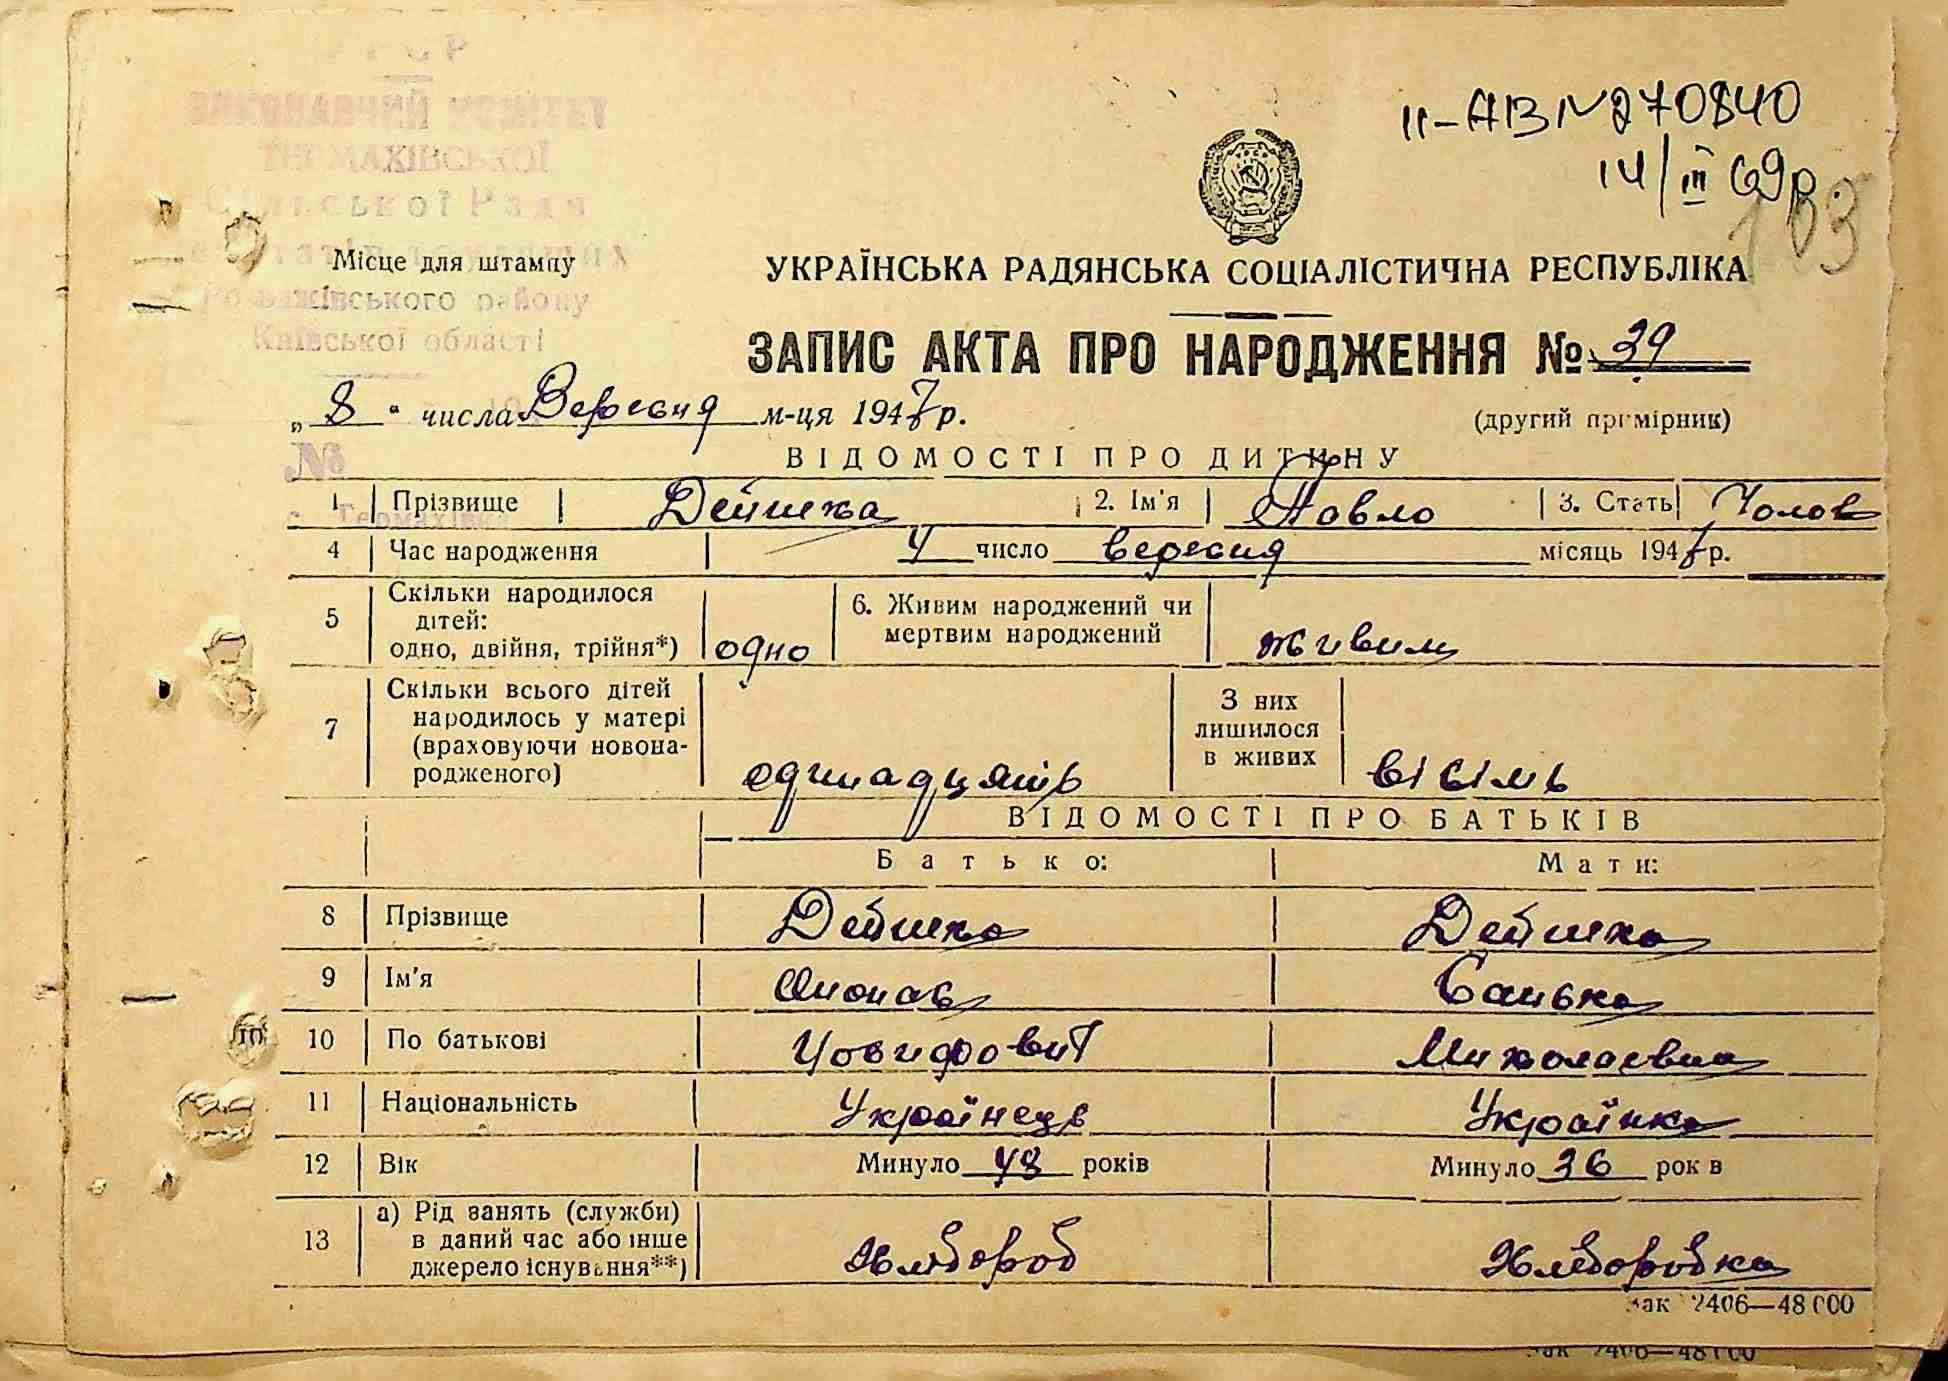 УРСР
ВИКОНАВЧИЙ КОМІТЕТ
ТЕРМАХІВСЬКОЇ
Сільської Ради
Місце для штампу
Розважівського району
Київської області
ІІ-АВ №270840
14/ІІІ 69р.
103
УКРАЇНСЬКА РАДЯНСЬКА СОЦІАЛІСТИЧНА РЕСПУБЛІКА
ЗАПИС АКТА ПРО НАРОДЖЕННЯ № 39
„ 8 " числа Вересня м-ця 1947 р.
(другий примірник)
№
с. Термахівка
ВІДОМОСТІ ПРО ДИТИНУ
1 Прізвище Дейшка 2. Ім'я Павло 3. Стать Чолов
4 Час народження 4 число вересня місяць 1947 р.
5 Скільки народилося дітей: одно, двійня, трійня*) одно 6. Живим народжений чи мертвим народжений живим
7 Скільки всього дітей народилось у матері (враховуючи новонародженого) одинадцять З них лишилося в живих вісімь
ВІДОМОСТІ ПРО БАТЬКІВ
Батько: Мати:
8 Прізвище Дейшко Дейшка
9 Ім'я Санька
10 По батькові Миколаевна
11 Національність Українець Українка
12 Вік Минуло 48 років Минуло 36 рок в
13 а) Рід занять (служби) в даний час або інше джерело існування**) Хлібороб Хліборобка
Зак 2406—48 000
Зак 2406—48 000